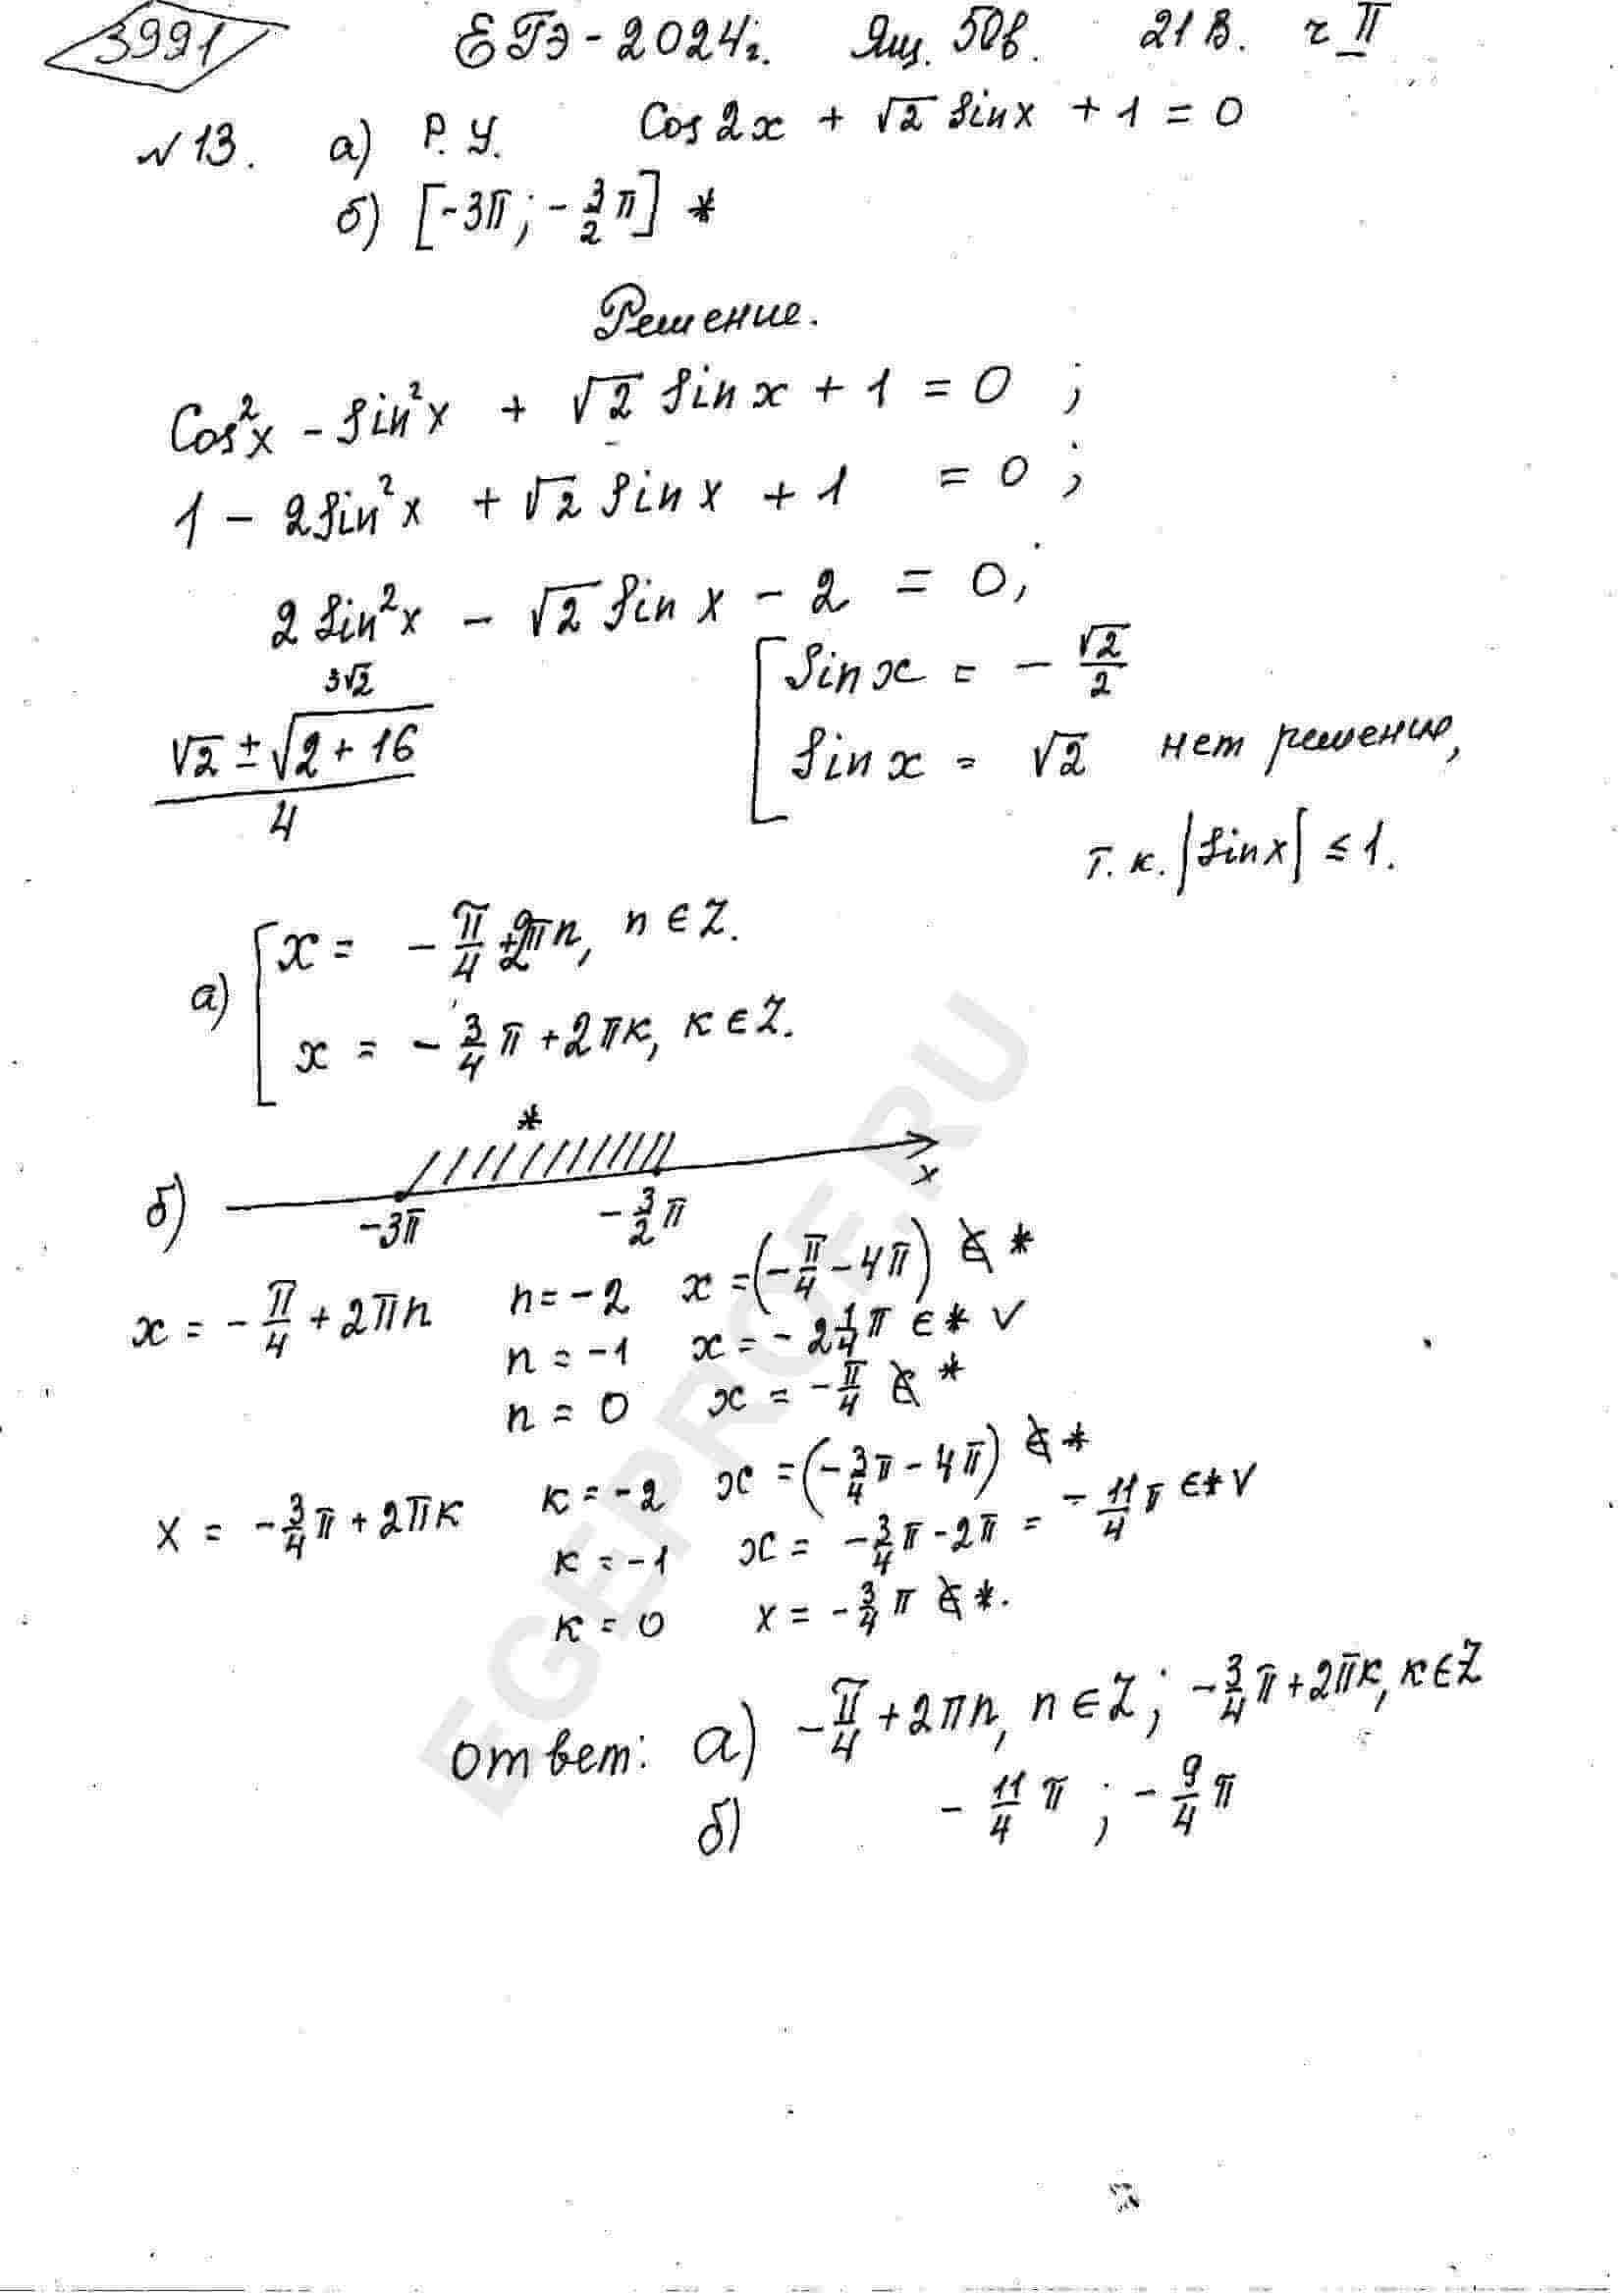 3991 ЕГЭ-2024г. Ящ. 50в. 21В. ч II
№13. а) Р.У. Cos2x + √2 sinx + 1 = 0
б) [-3π; -3/2 π] *
Решение.
Cos²x - sin²x + √2 sinx + 1 = 0 ;
1 - 2sin²x + √2 sinx + 1 = 0 ;
2 sin²x - √2 sinx - 2 = 0;
3√2
(√2 ± √(2 + 16))/4
[ sinx = - √2/2
sinx = √2 нет решения,
т.к. |sinx| ≤ 1.
а) [ x = - π/4 + 2πn, n ∈ Z.
x = - 3/4 π + 2πк, к ∈ Z.
*
б) -3π -3/2 π x
x = - π/4 + 2πn n = -2 x = (- π/4 - 4π) ∉ *
n = -1 x = - 2 1/4 π ∈ * ∨
n = 0 x = - π/4 ∉ *
x = - 3/4 π + 2πк к = -2 x = (- 3/4 π - 4π) ∉ *
к = -1 x = - 3/4 π - 2π = - 11/4 π ∈ * ∨
к = 0 x = - 3/4 π ∉ *.
ответ: а) - π/4 + 2πn, n ∈ Z; - 3/4 π + 2πк, к ∈ Z
б) - 11/4 π ; - 9/4 π
EGEPROF.RU